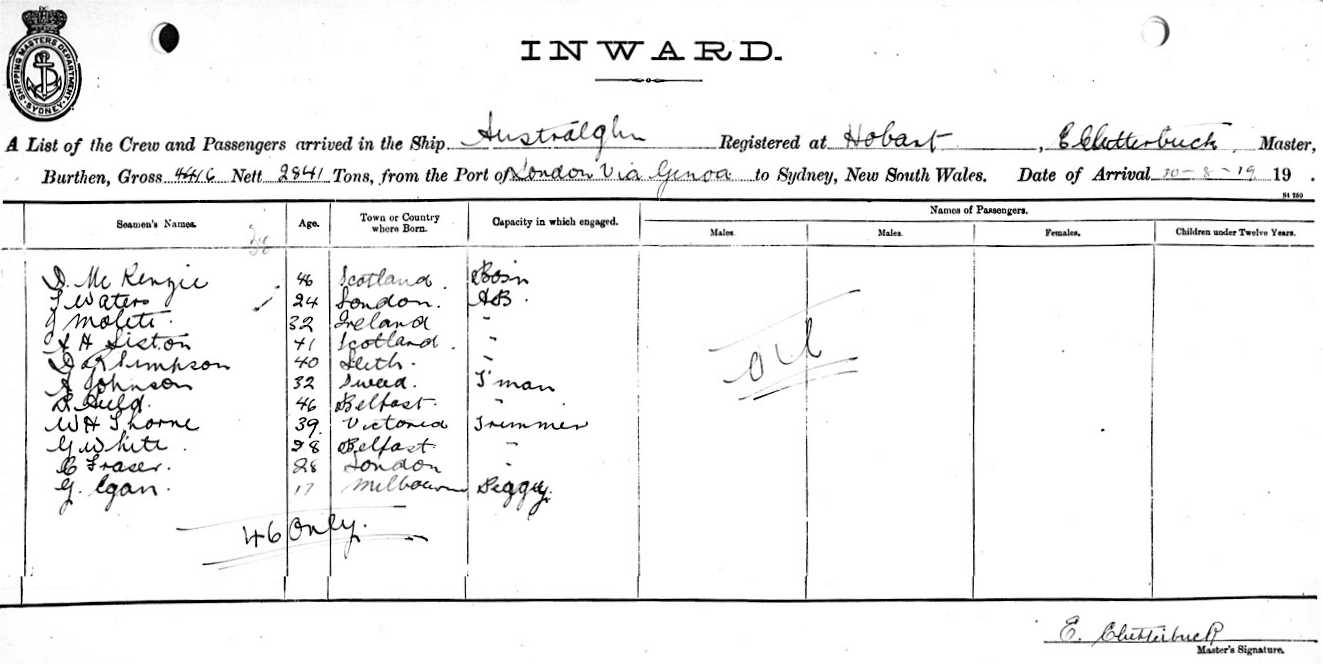 SHIPPING MASTERS DEPARTMENT · SYDNEY ·
INWARD.
A List of the Crew and Passengers arrived in the Ship Australglen Registered at Hobart, E Clutterbuck, Master,
Burthen, Gross 4416 Nett 2841 Tons, from the Port of London Via Genoa to Sydney, New South Wales. Date of Arrival 10-8-19 19 .
Seamen's Names. Age. Town or Country where Born. Capacity in which engaged. Names of Passengers.
Males. Males. Females. Children under Twelve Years.
D. McKenzie 46 Scotland. Bosn
Waters 24 London. AB.
32 Ireland "
H Siston 41 Scotland. "
Simpson 40 Leith. "
A Johnson 32 Swed. F'man
Auld. 46 Belfast. "
W H Thorne 39. Victoria Trimmer
G. White. 28 Belfast "
C Fraser. 28 London "
G. Egan. 17 Melbourne Peggy.
46 Only.
E. Clutterbuck
Master's Signature.